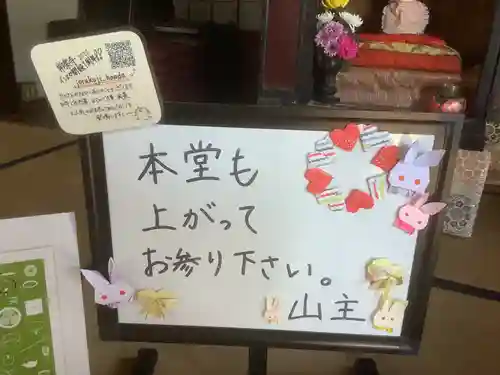 jorakuji_honda
本堂も
上がって
お参り下さい。
山主